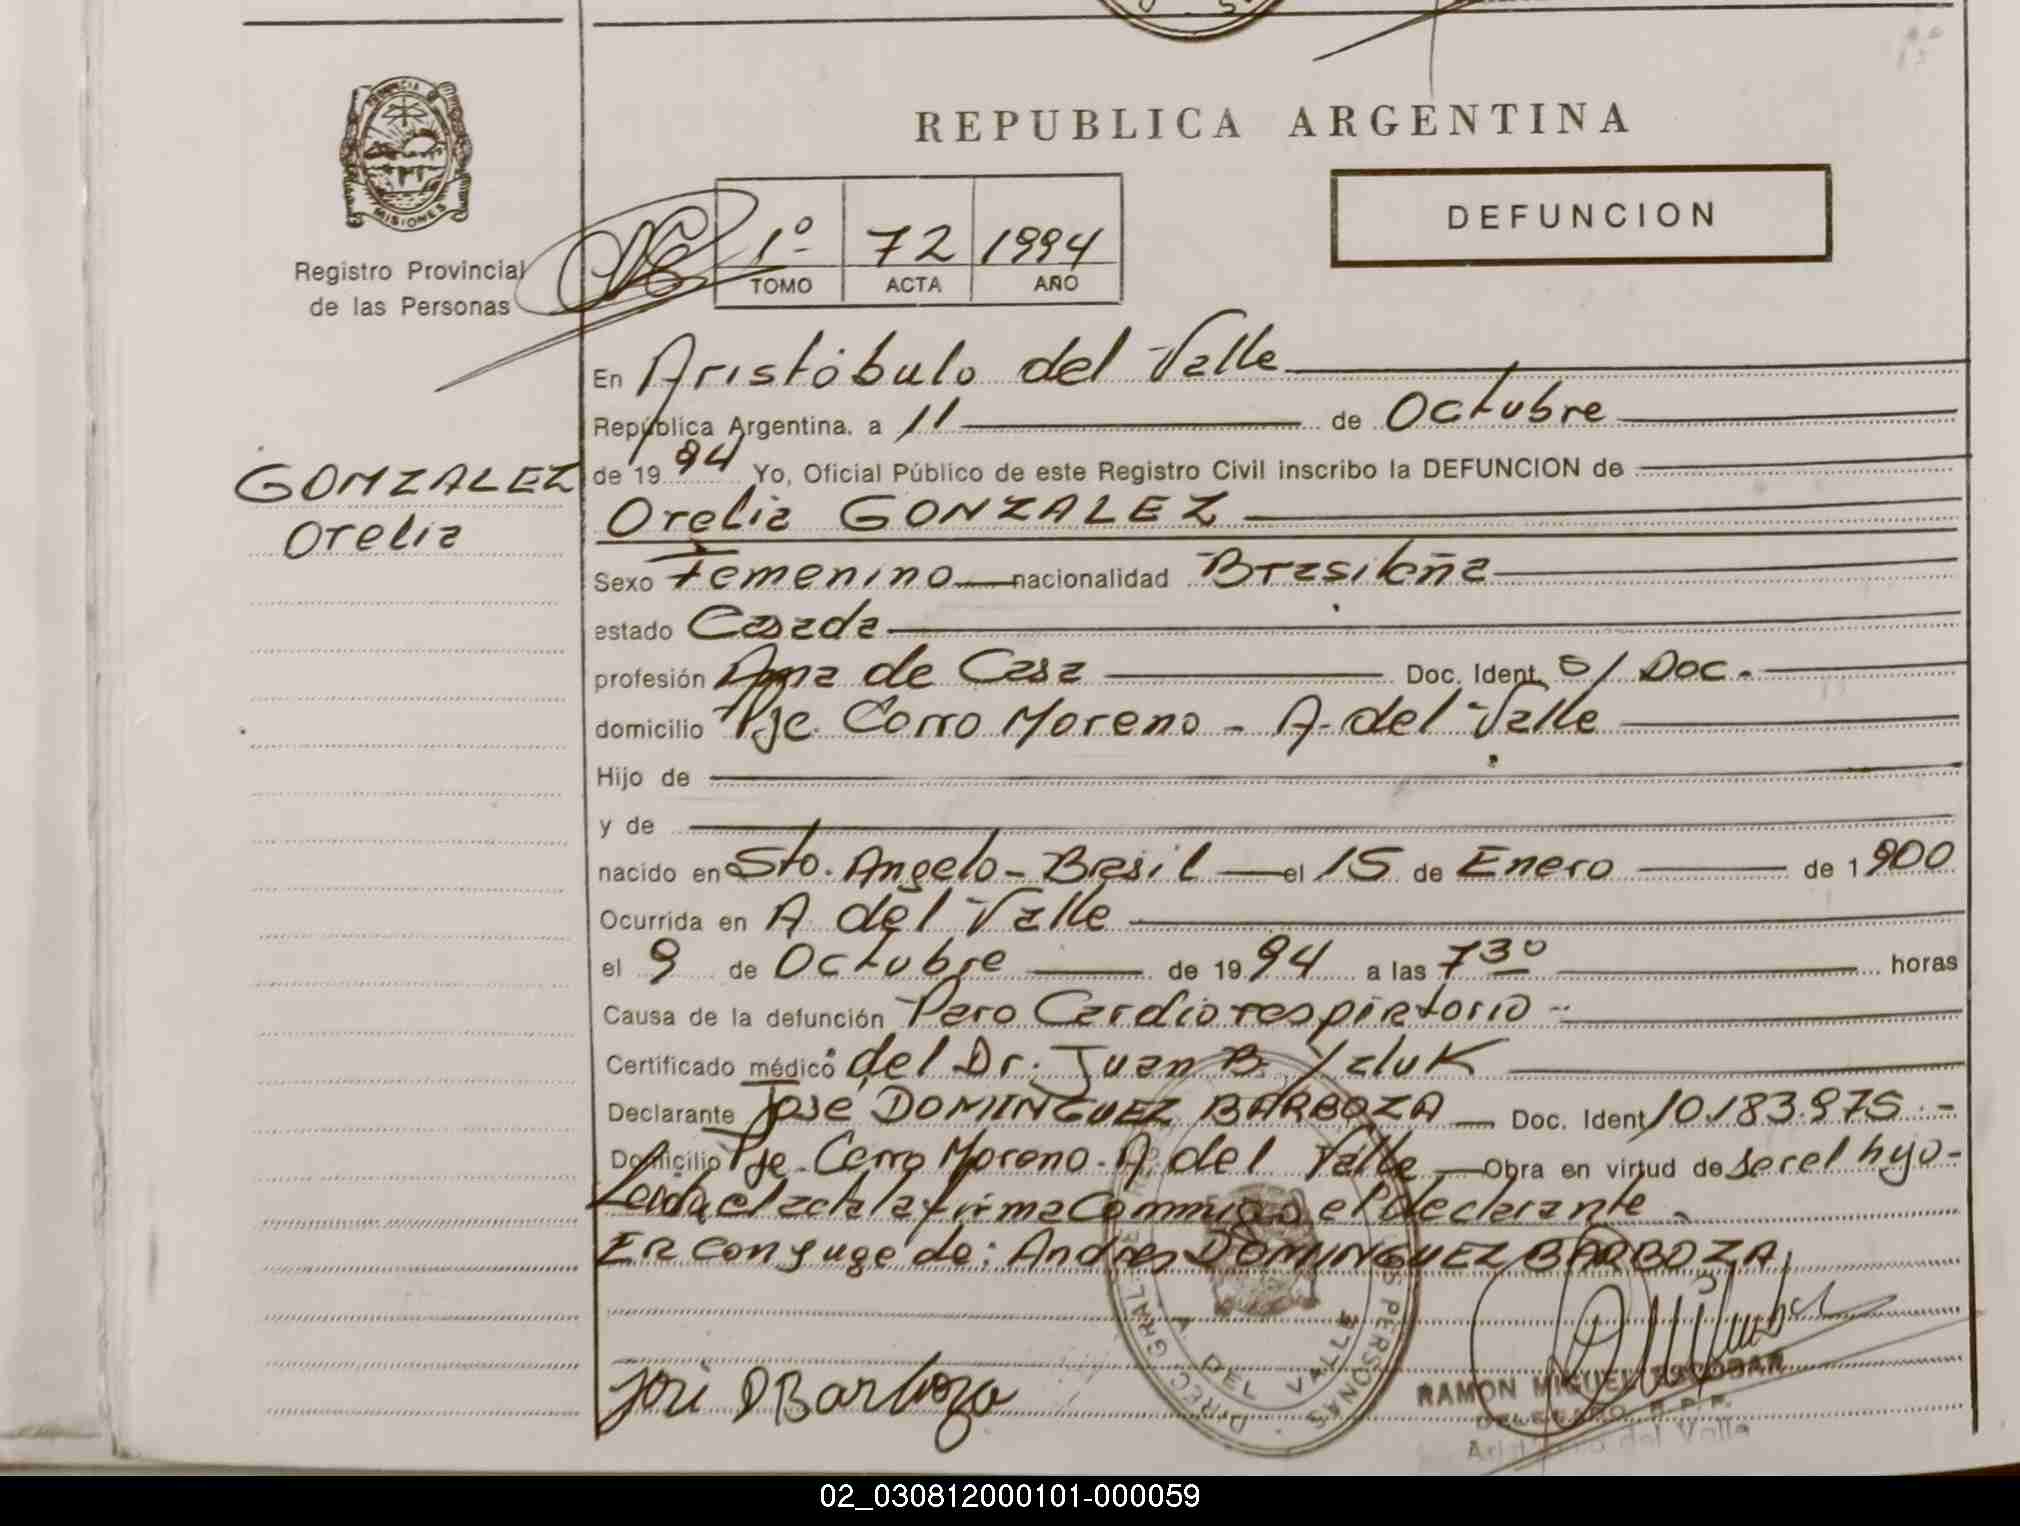 PROVINCIA
MISIONES
Registro Provincial
de las Personas
REPUBLICA ARGENTINA
DEFUNCION
1º 72 1994
TOMO ACTA AÑO
GONZALEZ
Orelia
En Aristóbulo del Valle
República Argentina. a 11 de Octubre
de 1994 Yo, Oficial Público de este Registro Civil inscribo la DEFUNCION de
Orelia GONZALEZ
Sexo Femenino nacionalidad Brasileña
estado Casada
profesión Ama de Casa Doc. Ident. S/Doc.
domicilio Pje. Cerro Moreno - A. del Valle
Hijo de
y de
nacido en Sto. Angelo - Brasil el 15 de Enero de 1900
Ocurrida en A. del Valle
el 9 de Octubre de 1994 a las 7 30 horas
Causa de la defunción Paro Cardiorespiratorio
Certificado médico del Dr. Juan B. Yaluk
Declarante José DOMINGUEZ BARBOZA Doc. Ident 10.183.975.-
Domicilio Pje. Cerro Moreno. A. del Valle Obra en virtud de ser el hijo-
Leida el acta la firma Conmigo el declarante.
ER conyuge de: Andres DOMINGUEZ BARBOZA.
José D Barboza
A. DEL VALLE
PERSONAS
RAMON MIGUEL ESCOBAR
DELEGADO R.P.P.
Aristóbulo del Valle
02_030812000101-000059